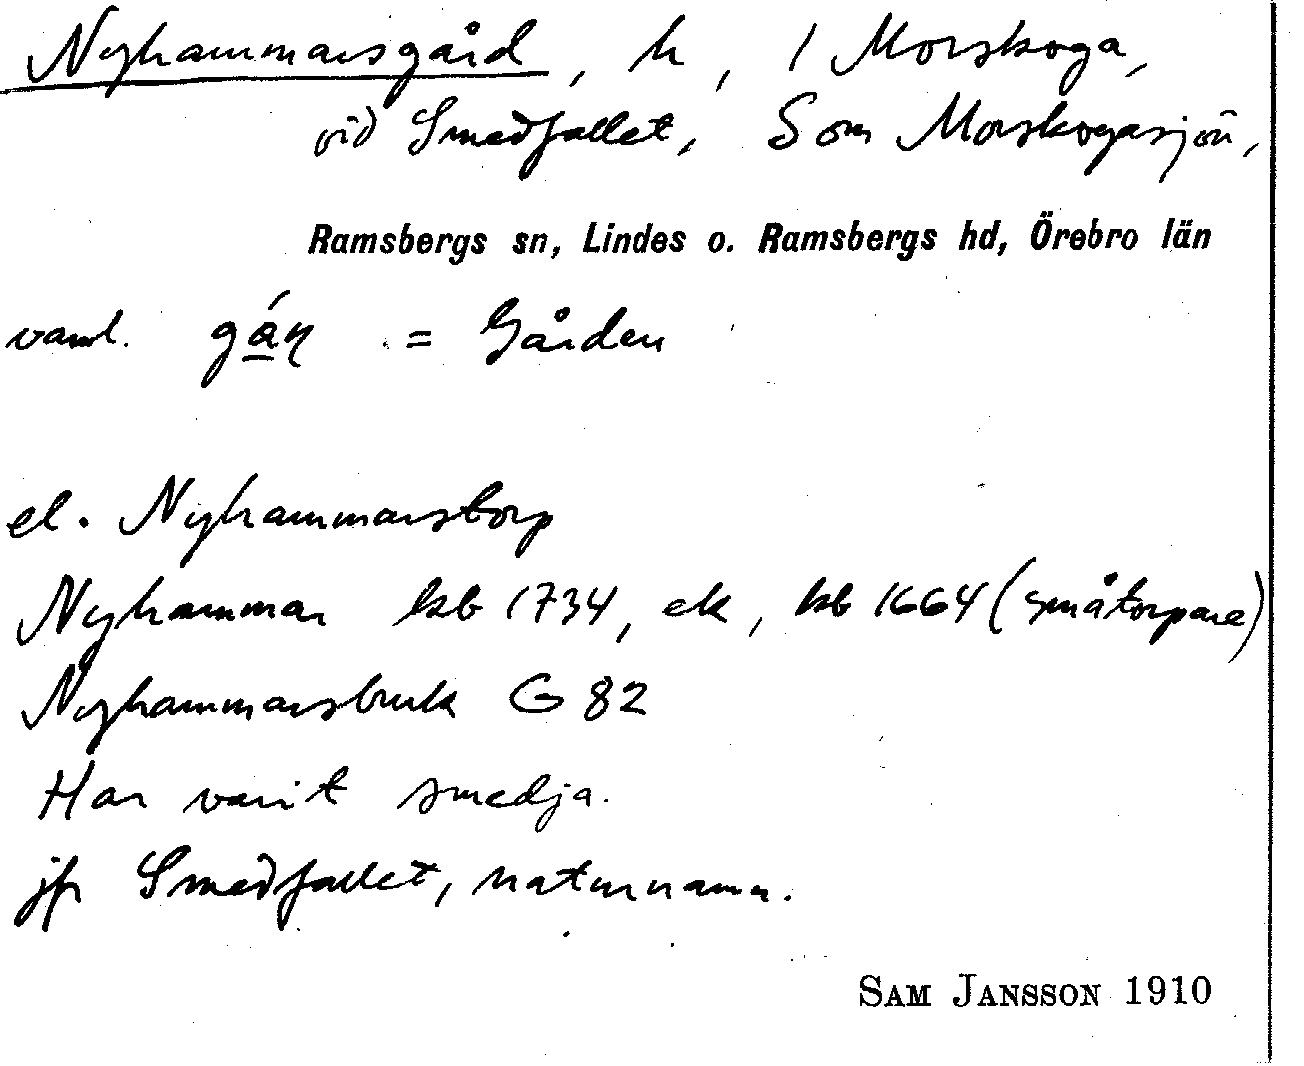 Nyhammarsgård, h, i Morskoga,
vid Smedfallet, S om Morskogasjön,
Ramsbergs sn, Lindes o. Ramsbergs hd, Örebro län
vanl. gá̲ɳ = Gården
el. Nyhammarstorp
Nyhammar kb 1734, ek, kb 1664 (småtorpare)
Nyhammarsbruk G 82
Har varit smedja.
jfr Smedfallet, naturnamn.
SAM JANSSON 1910